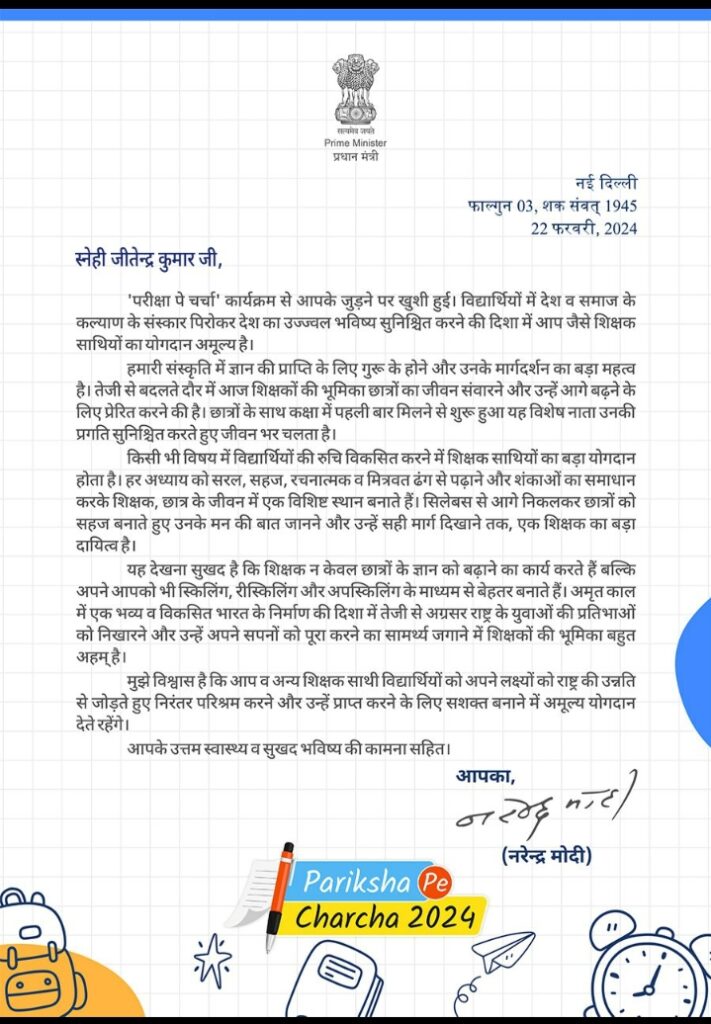 सत्यमेव जयते
Prime Minister
प्रधान मंत्री
नई दिल्ली
फाल्गुन 03, शक संवत् 1945
22 फरवरी, 2024
स्नेही जीतेन्द्र कुमार जी,
'परीक्षा पे चर्चा' कार्यक्रम से आपके जुड़ने पर खुशी हुई। विद्यार्थियों में देश व समाज के
कल्याण के संस्कार पिरोकर देश का उज्ज्वल भविष्य सुनिश्चित करने की दिशा में आप जैसे शिक्षक
साथियों का योगदान अमूल्य है।
हमारी संस्कृति में ज्ञान की प्राप्ति के लिए गुरू के होने और उनके मार्गदर्शन का बड़ा महत्व
है। तेजी से बदलते दौर में आज शिक्षकों की भूमिका छात्रों का जीवन संवारने और उन्हें आगे बढ़ने के
लिए प्रेरित करने की है। छात्रों के साथ कक्षा में पहली बार मिलने से शुरू हुआ यह विशेष नाता उनकी
प्रगति सुनिश्चित करते हुए जीवन भर चलता है।
किसी भी विषय में विद्यार्थियों की रुचि विकसित करने में शिक्षक साथियों का बड़ा योगदान
होता है। हर अध्याय को सरल, सहज, रचनात्मक व मित्रवत ढंग से पढ़ाने और शंकाओं का समाधान
करके शिक्षक, छात्र के जीवन में एक विशिष्ट स्थान बनाते हैं। सिलेबस से आगे निकलकर छात्रों को
सहज बनाते हुए उनके मन की बात जानने और उन्हें सही मार्ग दिखाने तक, एक शिक्षक का बड़ा
दायित्व है।
यह देखना सुखद है कि शिक्षक न केवल छात्रों के ज्ञान को बढ़ाने का कार्य करते हैं बल्कि
अपने आपको भी स्किलिंग, रीस्किलिंग और अपस्किलिंग के माध्यम से बेहतर बनाते हैं। अमृत काल
में एक भव्य व विकसित भारत के निर्माण की दिशा में तेजी से अग्रसर राष्ट्र के युवाओं की प्रतिभाओं
को निखारने और उन्हें अपने सपनों को पूरा करने का सामर्थ्य जगाने में शिक्षकों की भूमिका बहुत
अहम् है।
मुझे विश्वास है कि आप व अन्य शिक्षक साथी विद्यार्थियों को अपने लक्ष्यों को राष्ट्र की उन्नति
से जोड़ते हुए निरंतर परिश्रम करने और उन्हें प्राप्त करने के लिए सशक्त बनाने में अमूल्य योगदान
देते रहेंगे।
आपके उत्तम स्वास्थ्य व सुखद भविष्य की कामना सहित।
आपका,
नरेन्द्र मोदी
(नरेन्द्र मोदी)
Pariksha Pe
Charcha 2024